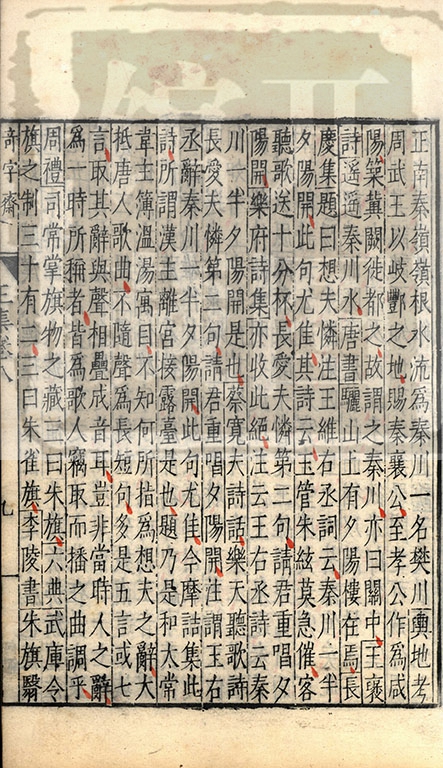 正南秦嶺嶺根水流爲秦川一名樊川輿地考
周武王以岐酆之地賜秦襄公至孝公作爲咸
陽築冀闕徙都之故謂之秦川亦曰關中王褒
詩遥遥秦川水唐書驪山上有夕陽樓在焉長
慶集題曰想夫憐注王維右丞詞云秦川一半
夕陽開此句尤佳其詩云玉管朱絃莫急催客
聽歌送十分杯長愛夫憐第二句請君重唱夕
陽開樂府詩集亦收此絕注云王右丞詩云秦
川一半夕陽開是也蔡寬夫詩話樂天聽歌詩
長愛夫憐第二句請君重唱夕陽開注謂王右
丞辭秦川一半夕陽開此句尤佳今摩詰集此
詩所謂漢主離宮接露臺是也題乃是和太常
韋主簿溫湯寓目不知何所指爲想夫之辭大
抵唐人歌曲不隨聲爲長短句多是五言或七
言取其辭與聲相疊成音耳豈非當時人之辭
爲一時所稱者皆爲歌人竊取而播之曲調乎
周禮司常掌旗物之藏三曰朱旗六典武庫令
旗之制三十有二三曰朱雀旗李陵書朱旗翳
奇字齋
九